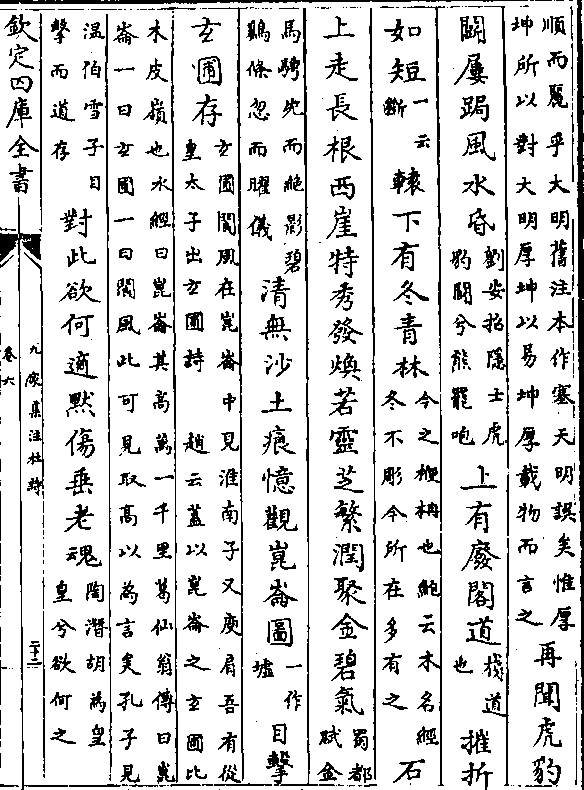 順而麗乎大明舊注本作塞天明誤矣惟厚坤所以對大明厚坤以易坤厚載物而言之再聞虎豹
鬭屢跼風水昏劉安招隱士虎豹鬭兮熊羆咆上有廢閣道棧道也摧折
如短一云斷轅下有冬青林今之楩柟也鮑云木名經冬不彫今所在多有之石
上走長根西崖特秀發煥若靈芝繁潤聚金碧氣蜀都賦金
馬騁光而絶影碧鷄倏忽而曜儀清無沙土痕憶觀崑崙圖一作墟目擊
玄圃存玄圃閬風在崑崙中見淮南子又庾肩吾有從皇太子出玄圃詩 趙云蓋以崑崙之玄圃比
木皮嶺也水經曰崑崙其高萬一千里葛仙翁傳曰崑崙一曰玄圃一曰閬風此可見取高以為言矣孔子見
温伯雪子目擊而道存對此欲何適默傷垂老魂陶潛胡為皇皇兮欲何之
欽定四庫全書
九家集注杜詩
卷六
二十二